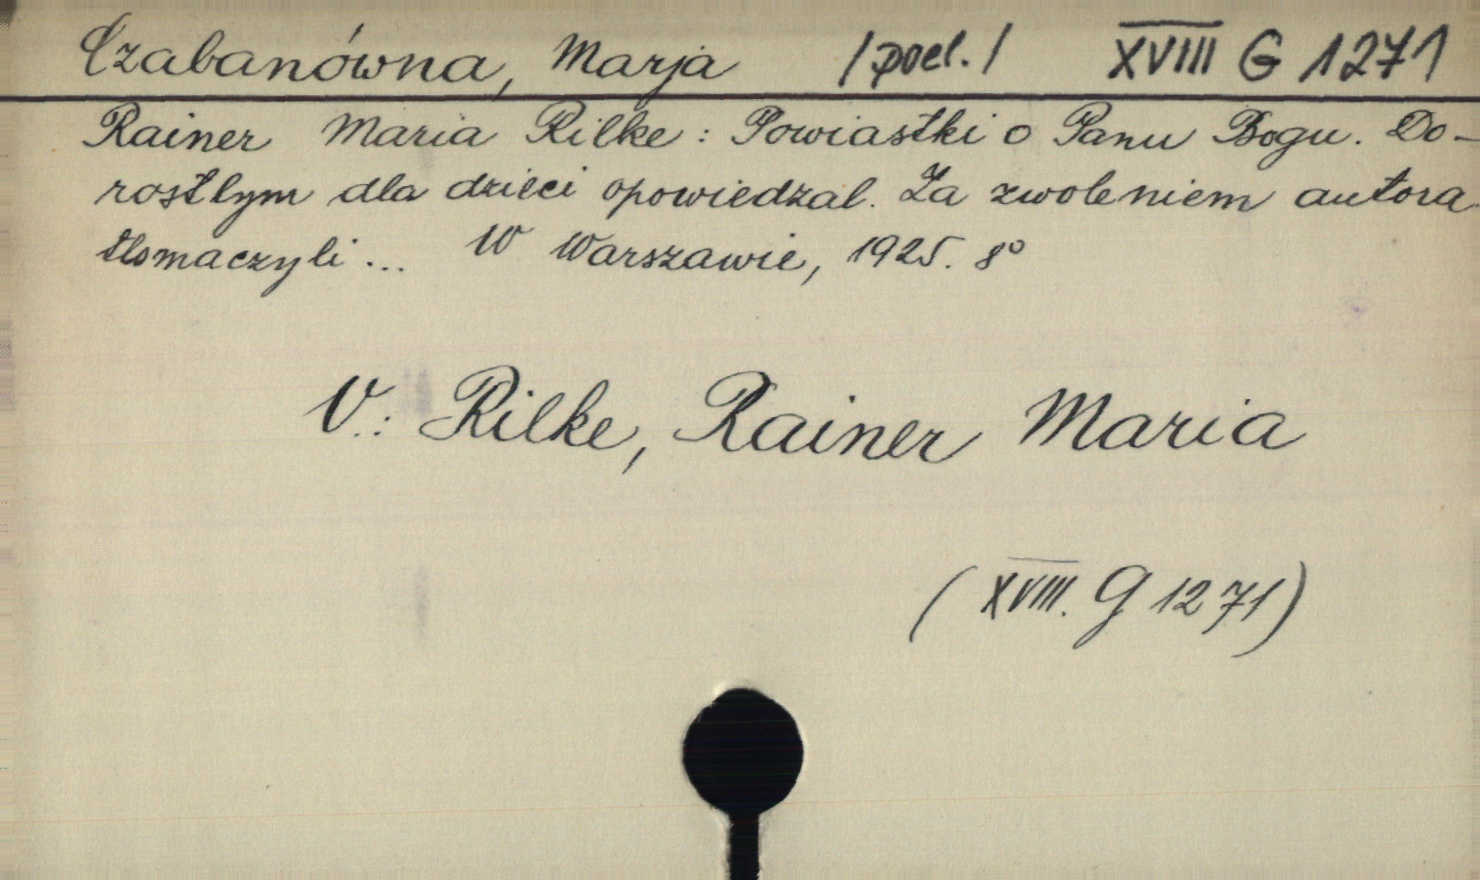 Czabanówna, Marja /poel./ XVIII G 1271
Rainer Maria Rilke: Powiastki o Panu Bogu. Do-
rosłym dla dzieci opowiedzał. Za zwoleniem autora
tłomaczyli ... W Warszawie, 1925. 8°
V.: Rilke, Rainer Maria
(XVIII. G 1271)